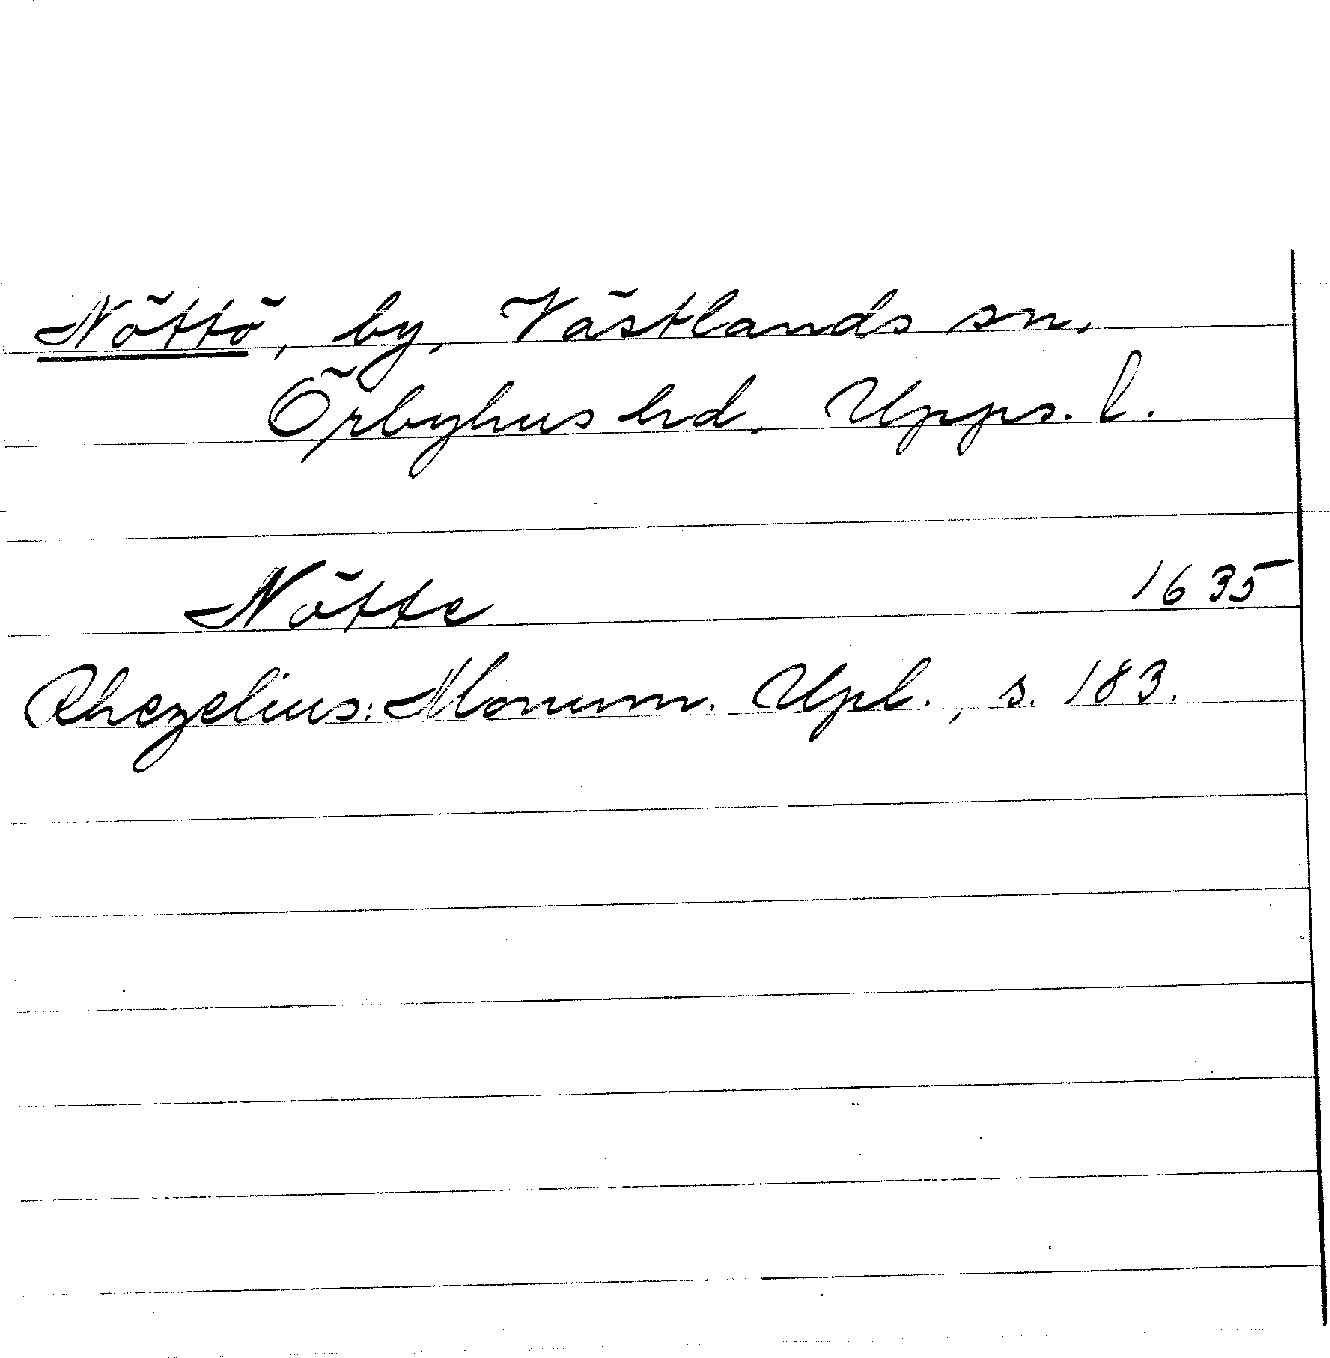 Nöttö, by, Västlands sn,
Örbyhus hd. Upps. l.
Nötte 1635
Rhezelius: Monum. Upl., s. 183.